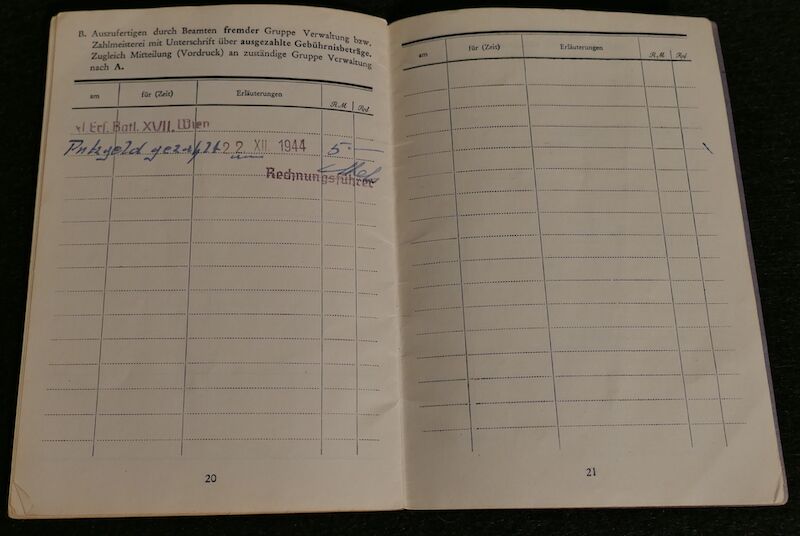 B. Auszufertigen durch Beamten fremder Gruppe Verwaltung bzw.
Zahlmeisterei mit Unterschrift über ausgezahlte Gebührnisbeträge.
Zugleich Mitteilung (Vordruck) an zuständige Gruppe Verwaltung
nach A.
am für (Zeit) Erläuterungen RM Rpf
Erf. Batl. XVII. Wien
Putzgeld gezahlt 22 XII. 1944 5.—
Rechnungsführer
20
am für (Zeit) Erläuterungen RM Rpf
21